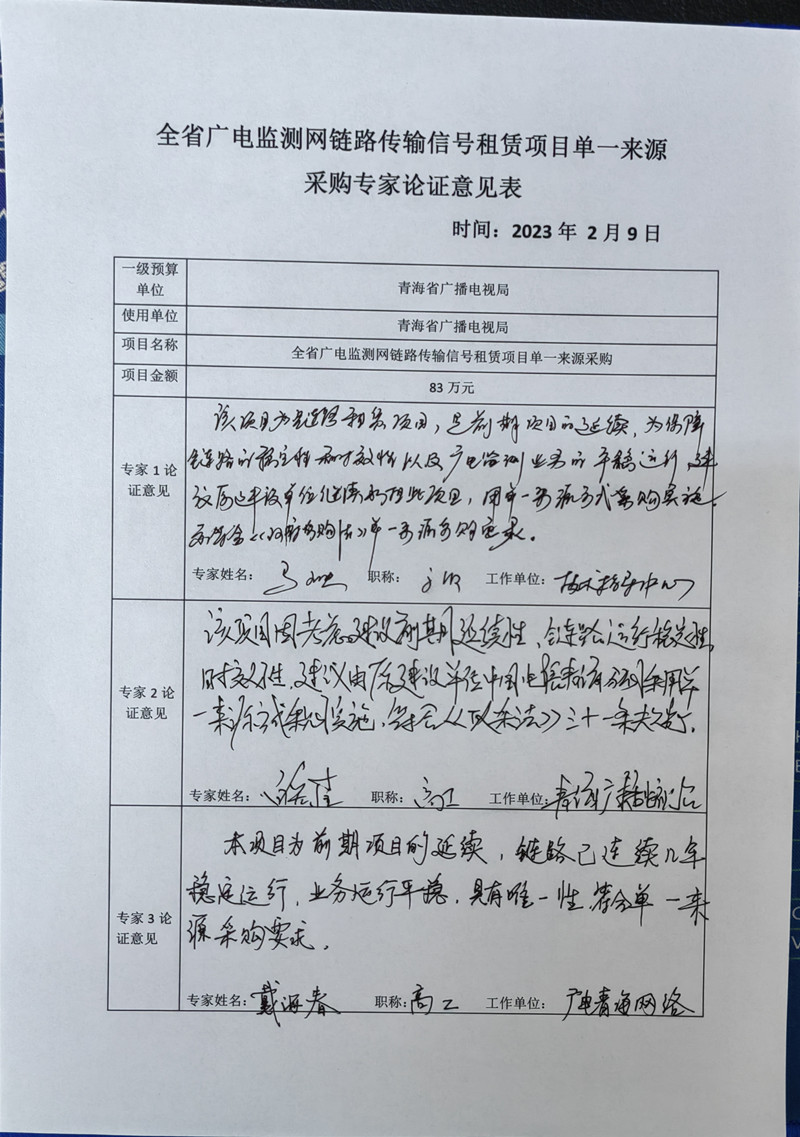 全省广电监测网链路传输信号租赁项目单一来源
采购专家论证意见表
时间：2023 年 2 月 9 日
一级预算
单位
青海省广播电视局
使用单位
青海省广播电视局
项目名称
全省广电监测网链路传输信号租赁项目单一来源采购
项目金额
83 万元
专家 1 论
证意见
该项目为链路租赁项目，是前期项目的延续，为保障
链路的稳定性和时效性以及广电监测业务的平稳运行，建
议原建设单位继续承担此项目，用单一来源方式采购实施，
符合《政府采购法》单一来源采购要求。
专家姓名： 职称： 工作单位：技术指导中心
专家 2 论
证意见
该项目因考虑建设前期延续性，链路运行稳定性，
时效性，建议由原建设单位中国电信青海分公司采用单
一来源方式采购实施，符合《政采法》三十一条规定。
专家姓名： 职称：高工 工作单位：
专家 3 论
证意见
本项目为前期项目的延续，链路已连续几年
稳定运行，业务运行平稳，具有唯一性，符合单一来
源采购要求。
专家姓名：戴海春 职称：高工 工作单位：广电青海网络